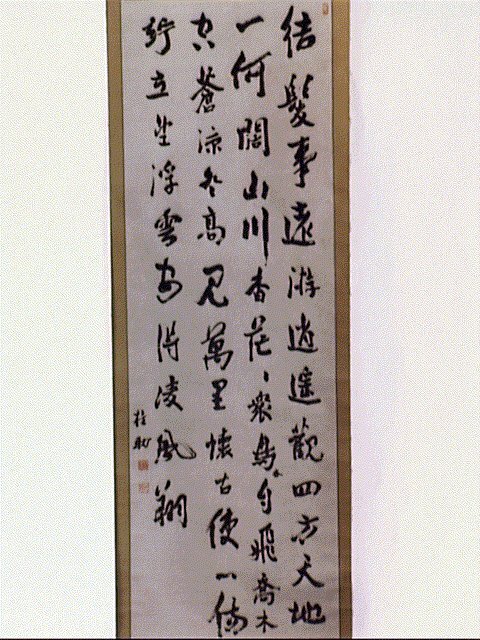 結髮事遠游逍遥觀四方天地
一何闊山川杳茫〻衆鳥自飛喬木
空蒼涼登高見萬里懷古使心傷
竚立望浮雲安得凌風翔